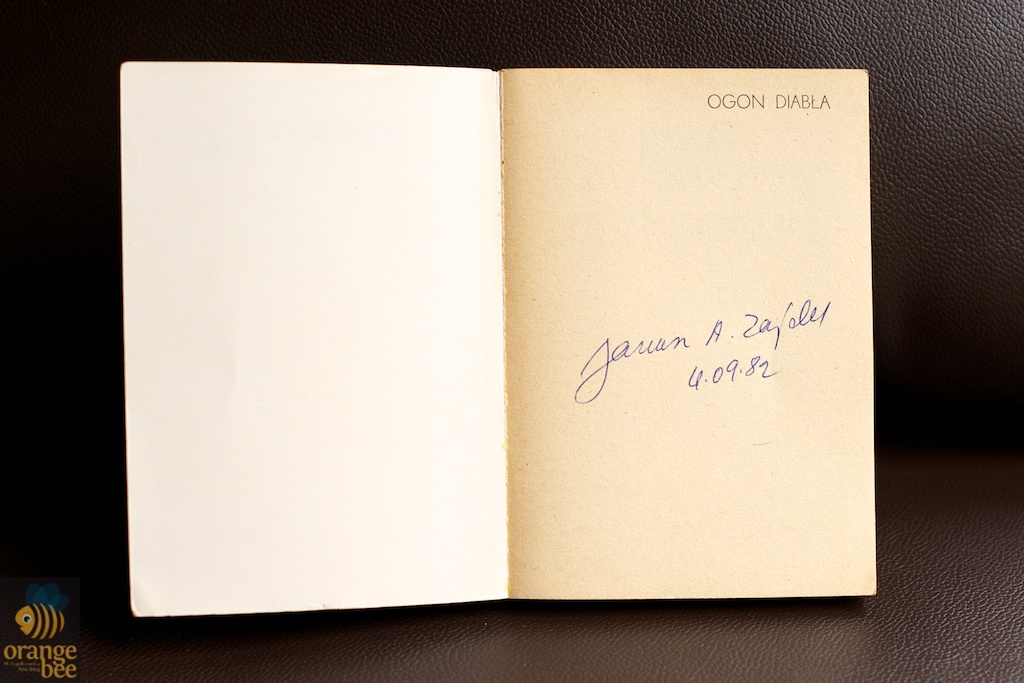 OGON DIABŁA
Janusz A. Zajdel
4.09.82
orange
bee